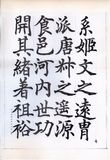 系姬文之遠胄
派唐叔之遥源
食邑河内世功
開其緒著祖裕